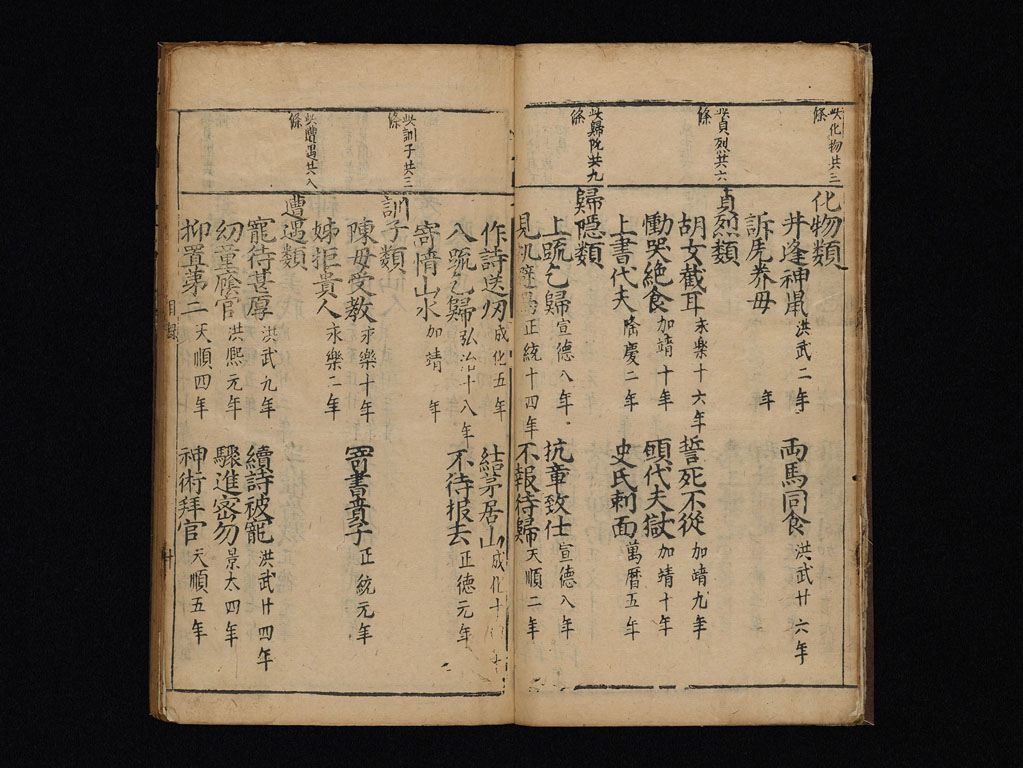 此化物共三條
化物類
井逢神鼡 洪武二年 両馬同食 洪武廿六年
訴虎养母 年
此貞烈共六條
貞烈類
胡女截耳 永楽十六年 誓死不從 加靖九年
慟哭絶食 加靖十年 頭代夫獄 加靖十年
上書代夫 隆慶二年 史氏刺面 萬曆五年
此歸隐共九條
歸隱類
上疏乞歸 宣德八年 抗章致仕 宣德八年
見机 正統十四年 不報待歸 天順二年
作詩送 成化五年 結茅居山 成化十
入疏乞歸 弘治十八年 不待报去 正德元年
寄情山水 加靖 年
此訓子共三條
訓子類
陳母受教 永樂十年 寄書責子 正統元年
姊拒貴人 永樂二年
此遭遇共八條
遭遇類
寵待甚厚 洪武九年 續詩被寵 洪武廿四年
幼童廕官 洪熙元年 驟進密勿 景太四年
抑置第二 天順四年 神術拜官 天順五年
目録 十